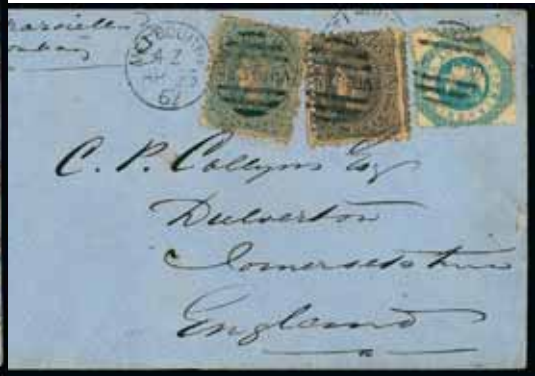 Marseilles
Bombay
MELBOURNE
4 Z
AP 25
67
C. P. Collyns Esq
Dulverton
Somersetshire
England